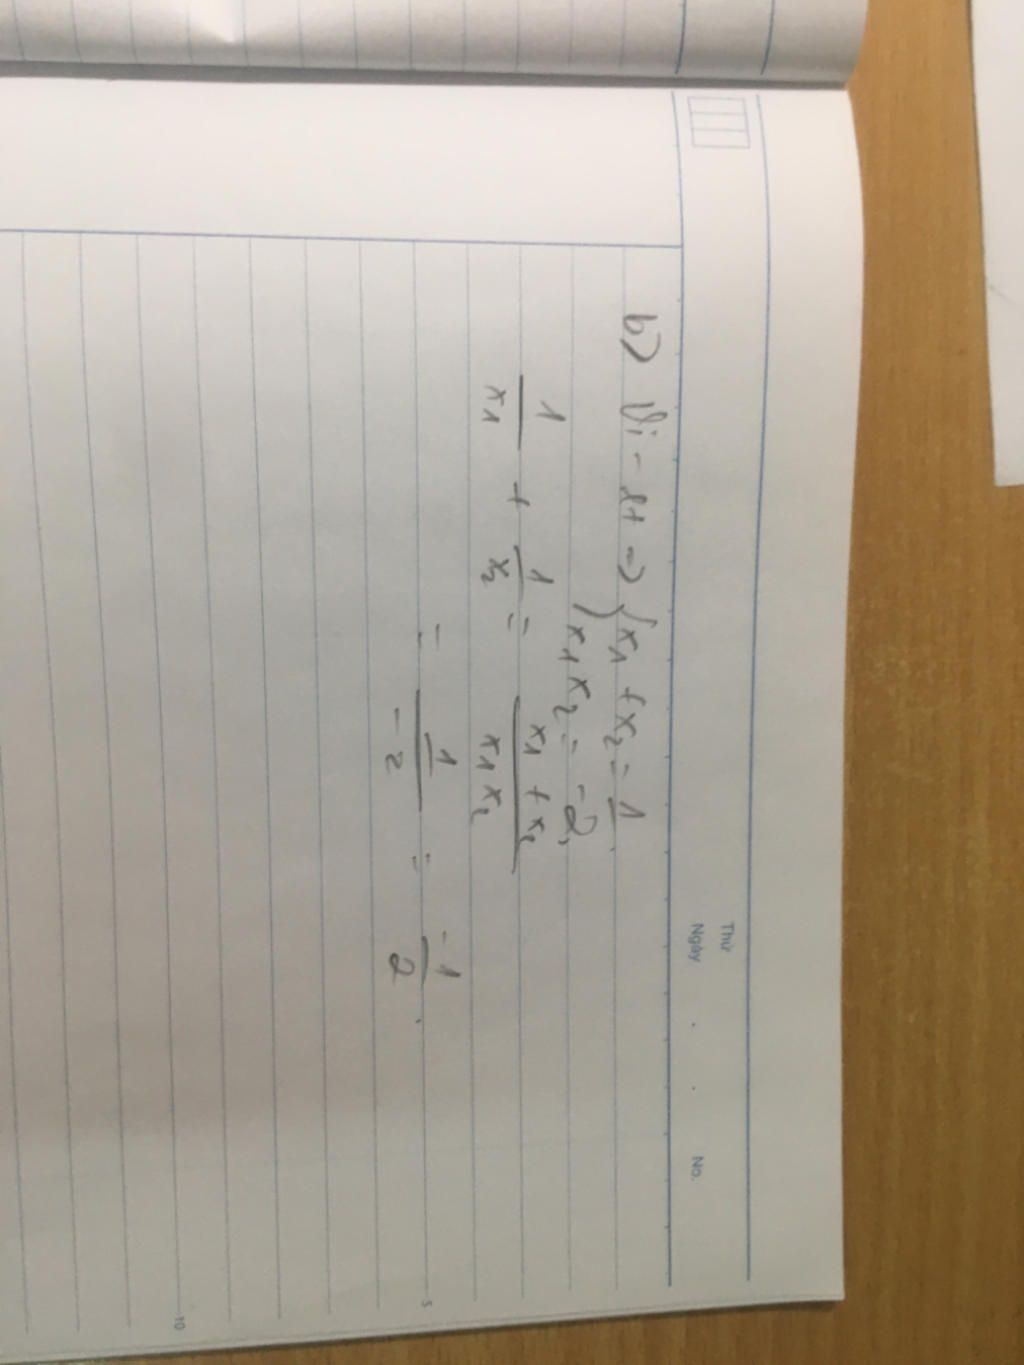 Thứ
Ngày . . No.
b) Vi-ét => { x1 + x2 = 1
x1x2 = -2.
1/x1 + 1/x2 = (x1 + x2)/(x1x2)
= 1/-2 = -1/2.
5
10